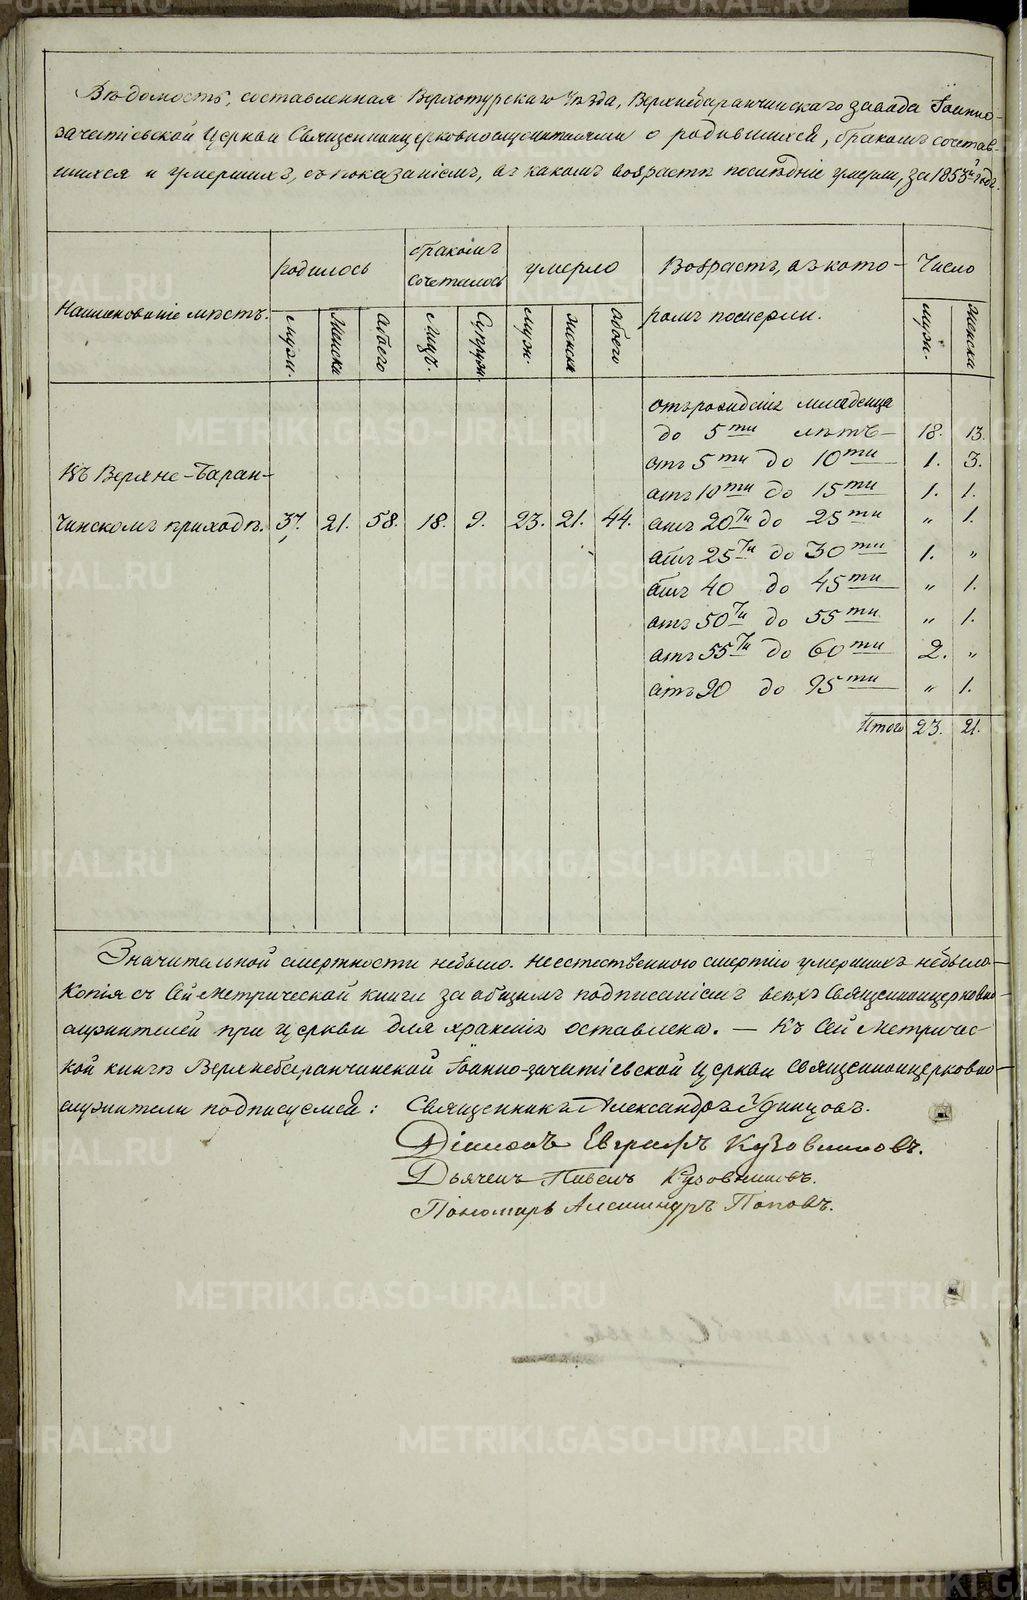 Вѣдомость, составленная Верхотурскаго Уѣзда, Верхнебаранчинскаго завода Іоанно-
зачатіевской Церкви Священноцерковнослужителями о родившихся, бракомъ сочетав-
шихся и умершихъ, съ показаніемъ, въ какомъ возрастѣ послѣдніе умерли, за 1853й годъ.
Наименованіе мѣстъ.
родилось
бракомъ сочеталось
умерло
Возрастъ, въ кото-
ромъ померли.
Число
Муж.
Женска
Обоего
Лицъ.
Супруж.
муж.
женска
обоего
муж.
женска
Въ Верхне-Баран-
чинскомъ приходѣ. 37. 21. 58. 18. 9. 23. 21. 44.
отъ рожденія младенца
до 5ти лѣтъ— 18. 13.
отъ 5ти до 10ти 1. 3.
отъ 10ти до 15ти 1. 1.
отъ 20ти до 25ти „ 1.
отъ 25ти до 30ти 1. „
отъ 40 до 45ти „ 1.
отъ 50ти до 55ти „ 1.
отъ 55ти до 60ти 2. „
отъ 90 до 95ти „ 1.
Итого 23. 21.
Значительной смертности небыло. Неестественною смертію умершихъ небыло—
Копія съ сей метрической книги за общимъ подписаніемъ всѣхъ Священноцерковно
служителей при церкви для храненія оставлена. — Къ сей метричес
кой книгѣ Верхнебаранчинской Іоанно-зачатіевской церкви священноцерковно-
служители подписуемся: Священникъ Александръ Удинцовъ.
Діаконъ Евграфъ Кузовниковъ.
Дьячекъ Павелъ Кузовниковъ.
Пономарь Александръ Поповъ.
METRIKI.GASO-URAL.RU